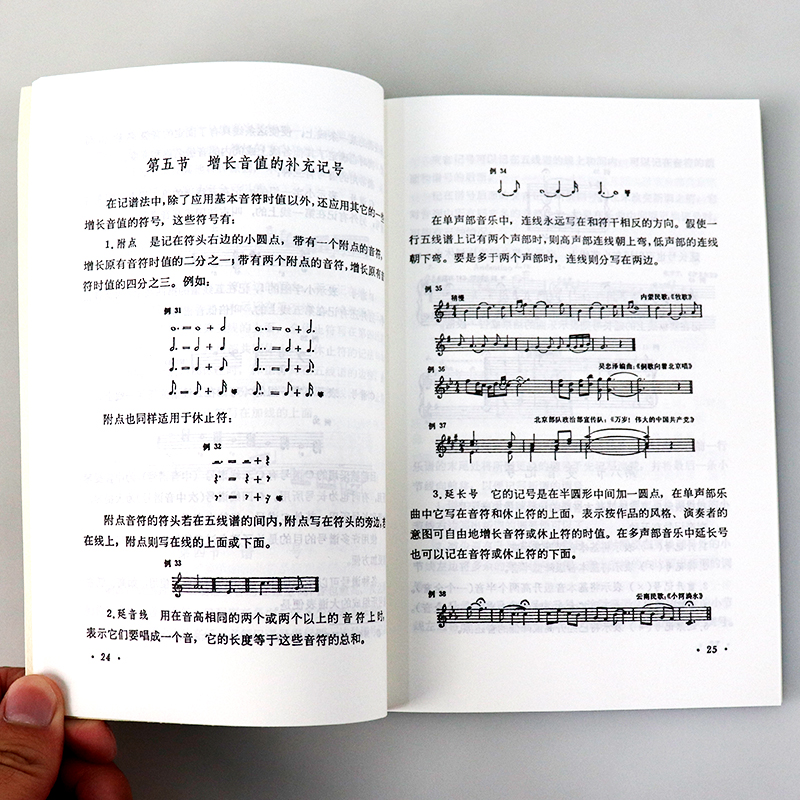 第五节 增长音值的补充记号
在记谱法中，除了应用基本音符时值以外，还应用其它的一些
增长音值的符号，这些符号有：
1.附点 是记在符头右边的小圆点，带有一个附点的音符，
增长原有音符时值的二分之一；带有两个附点的音符，增长原有音
符时值的四分之三。例如：
例 31
附点也同样适用于休止符：
例 32
附点音符的符头若在五线谱的间内，附点写在符头的旁边，
在线上，附点则写在线的上面或下面。
例 33
2.延音线 用在音高相同的两个或两个以上的音符上时，
表示它们要唱成一个音，它的长度等于这些音符的总和。
· 24 ·
例 34
在单声部音乐中，连线永远写在和符干相反的方向。假使一
行五线谱上记有两个声部时，则高声部连线朝上弯，低声部的连线
朝下弯。要是多于两个声部时，连线则分写在两边。
例 35
稍慢 内蒙民歌：《牧歌》
例 36
吴忠泽编曲：《侗歌向着北京唱》
例 37
北京部队政治部宣传队：《万岁！伟大的中国共产党》
3.延长号 它的记号是在半圆形中间加一圆点，在单声部乐
曲中它写在音符和休止符的上面，表示按作品的风格、演奏者的
意图可自由地增长音符或休止符的时值。在多声部音乐中延长号
也可以记在音符或休止符的下面。
例 38
云南民歌：《小河淌水》
· 25 ·